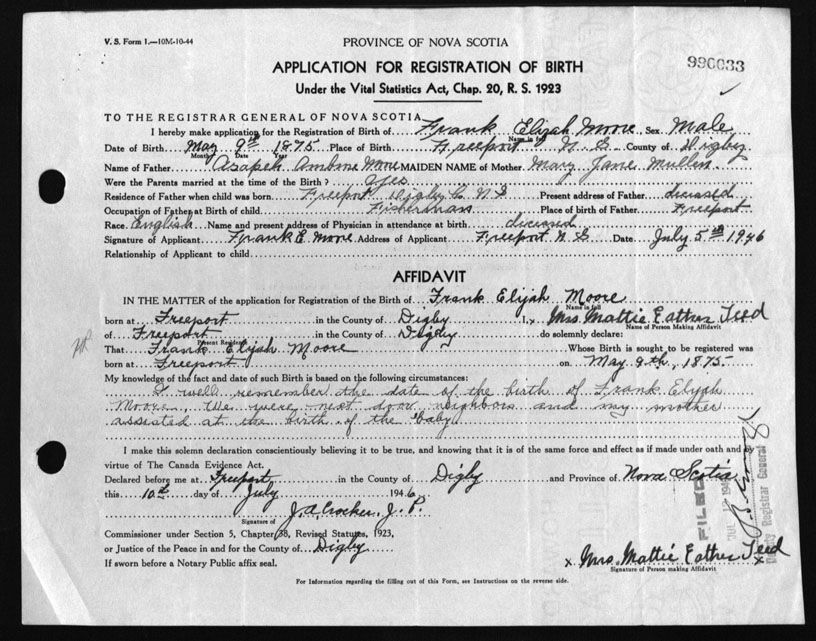 V. S. Form 1.—10M-10-44
PROVINCE OF NOVA SCOTIA
990033
APPLICATION FOR REGISTRATION OF BIRTH
Under the Vital Statistics Act, Chap. 20, R. S. 1923
TO THE REGISTRAR GENERAL OF NOVA SCOTIA
I hereby make application for the Registration of Birth of Frank Elijah Moore Sex Male
Name in full
Date of Birth May 9th 1875 Place of Birth Freeport N. S. County of Digby
Month Date Year
Name of Father Asapeh Ambrose Moore MAIDEN NAME of Mother Mary Jane Mullen
Were the Parents married at the time of the Birth? Yes
Residence of Father when child was born Freeport Digby C. N S Present address of Father diceased
Occupation of Father at Birth of child Fisherman Place of birth of Father Freeport
Race English Name and present address of Physician in attendance at birth diceased
Signature of Applicant Frank E Moore Address of Applicant Freeport N. S Date July 5th 1946
Relationship of Applicant to child
AFFIDAVIT
IN THE MATTER of the application for Registration of the Birth of Frank Elijah Moore
Name in full
born at Freeport in the County of Digby I, Mrs Mattie Teed
Name of Person Making Affidavit
of Freeport in the County of Digby do solemnly declare:
Present Residence
That Frank Elijah Moore Whose Birth is sought to be registered was
born at Freeport on May 9th, 1875
My knowledge of the fact and date of such Birth is based on the following circumstances:
I well remember the date of the birth of Frank Elijah
Moore. We were next door neighbors and my mother
assisted at the birth of the baby
I make this solemn declaration conscientiously believing it to be true, and knowing that it is of the same force and effect as if made under oath and by
virtue of The Canada Evidence Act.
Declared before me at Freeport in the County of Digby and Province of Nova Scotia
this 10th day of July 1946
J. A. Crocker, J. P.
Signature of
Commissioner under Section 5, Chapter 38, Revised Statutes, 1923,
or Justice of the Peace in and for the County of Digby
If sworn before a Notary Public affix seal.
FILED
JUL 12 194
Deputy Registrar General
x Mrs. Mattie Teed x
Signature of Person making Affidavit
For Information regarding the filling out of this Form, see Instructions on the reverse side.